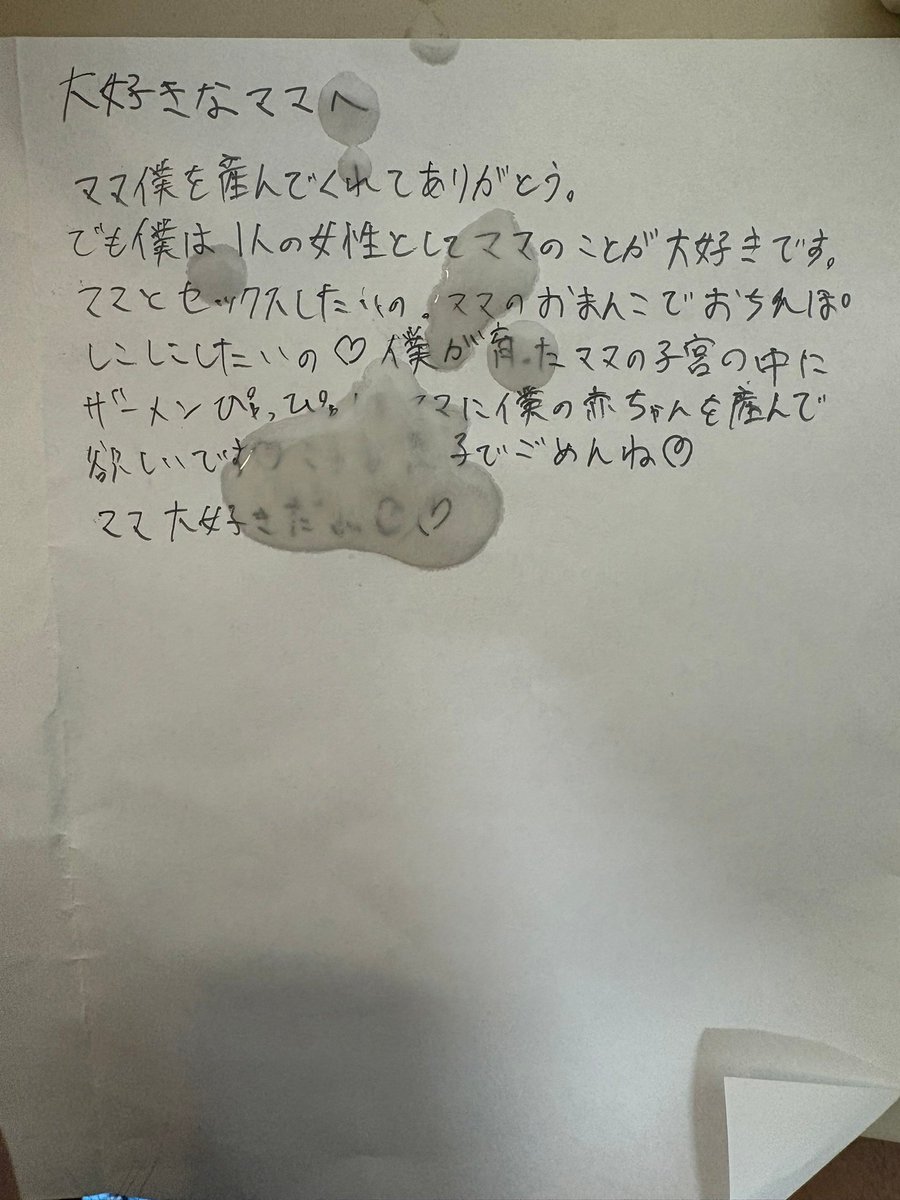 大好きなママへ
ママ僕を産んでくれてありがとう。
でも僕は1人の女性としてママのことが大好きです。
ママとセックスしたいの。ママのおまんこでおちんぽ
しこしこしたいの♡僕が育ったママの子宮の中に
ザーメンぴゅっぴゅ マに僕の赤ちゃんを産んで
欲しいです 子でごめんね
ママ大好きだよ♡♡